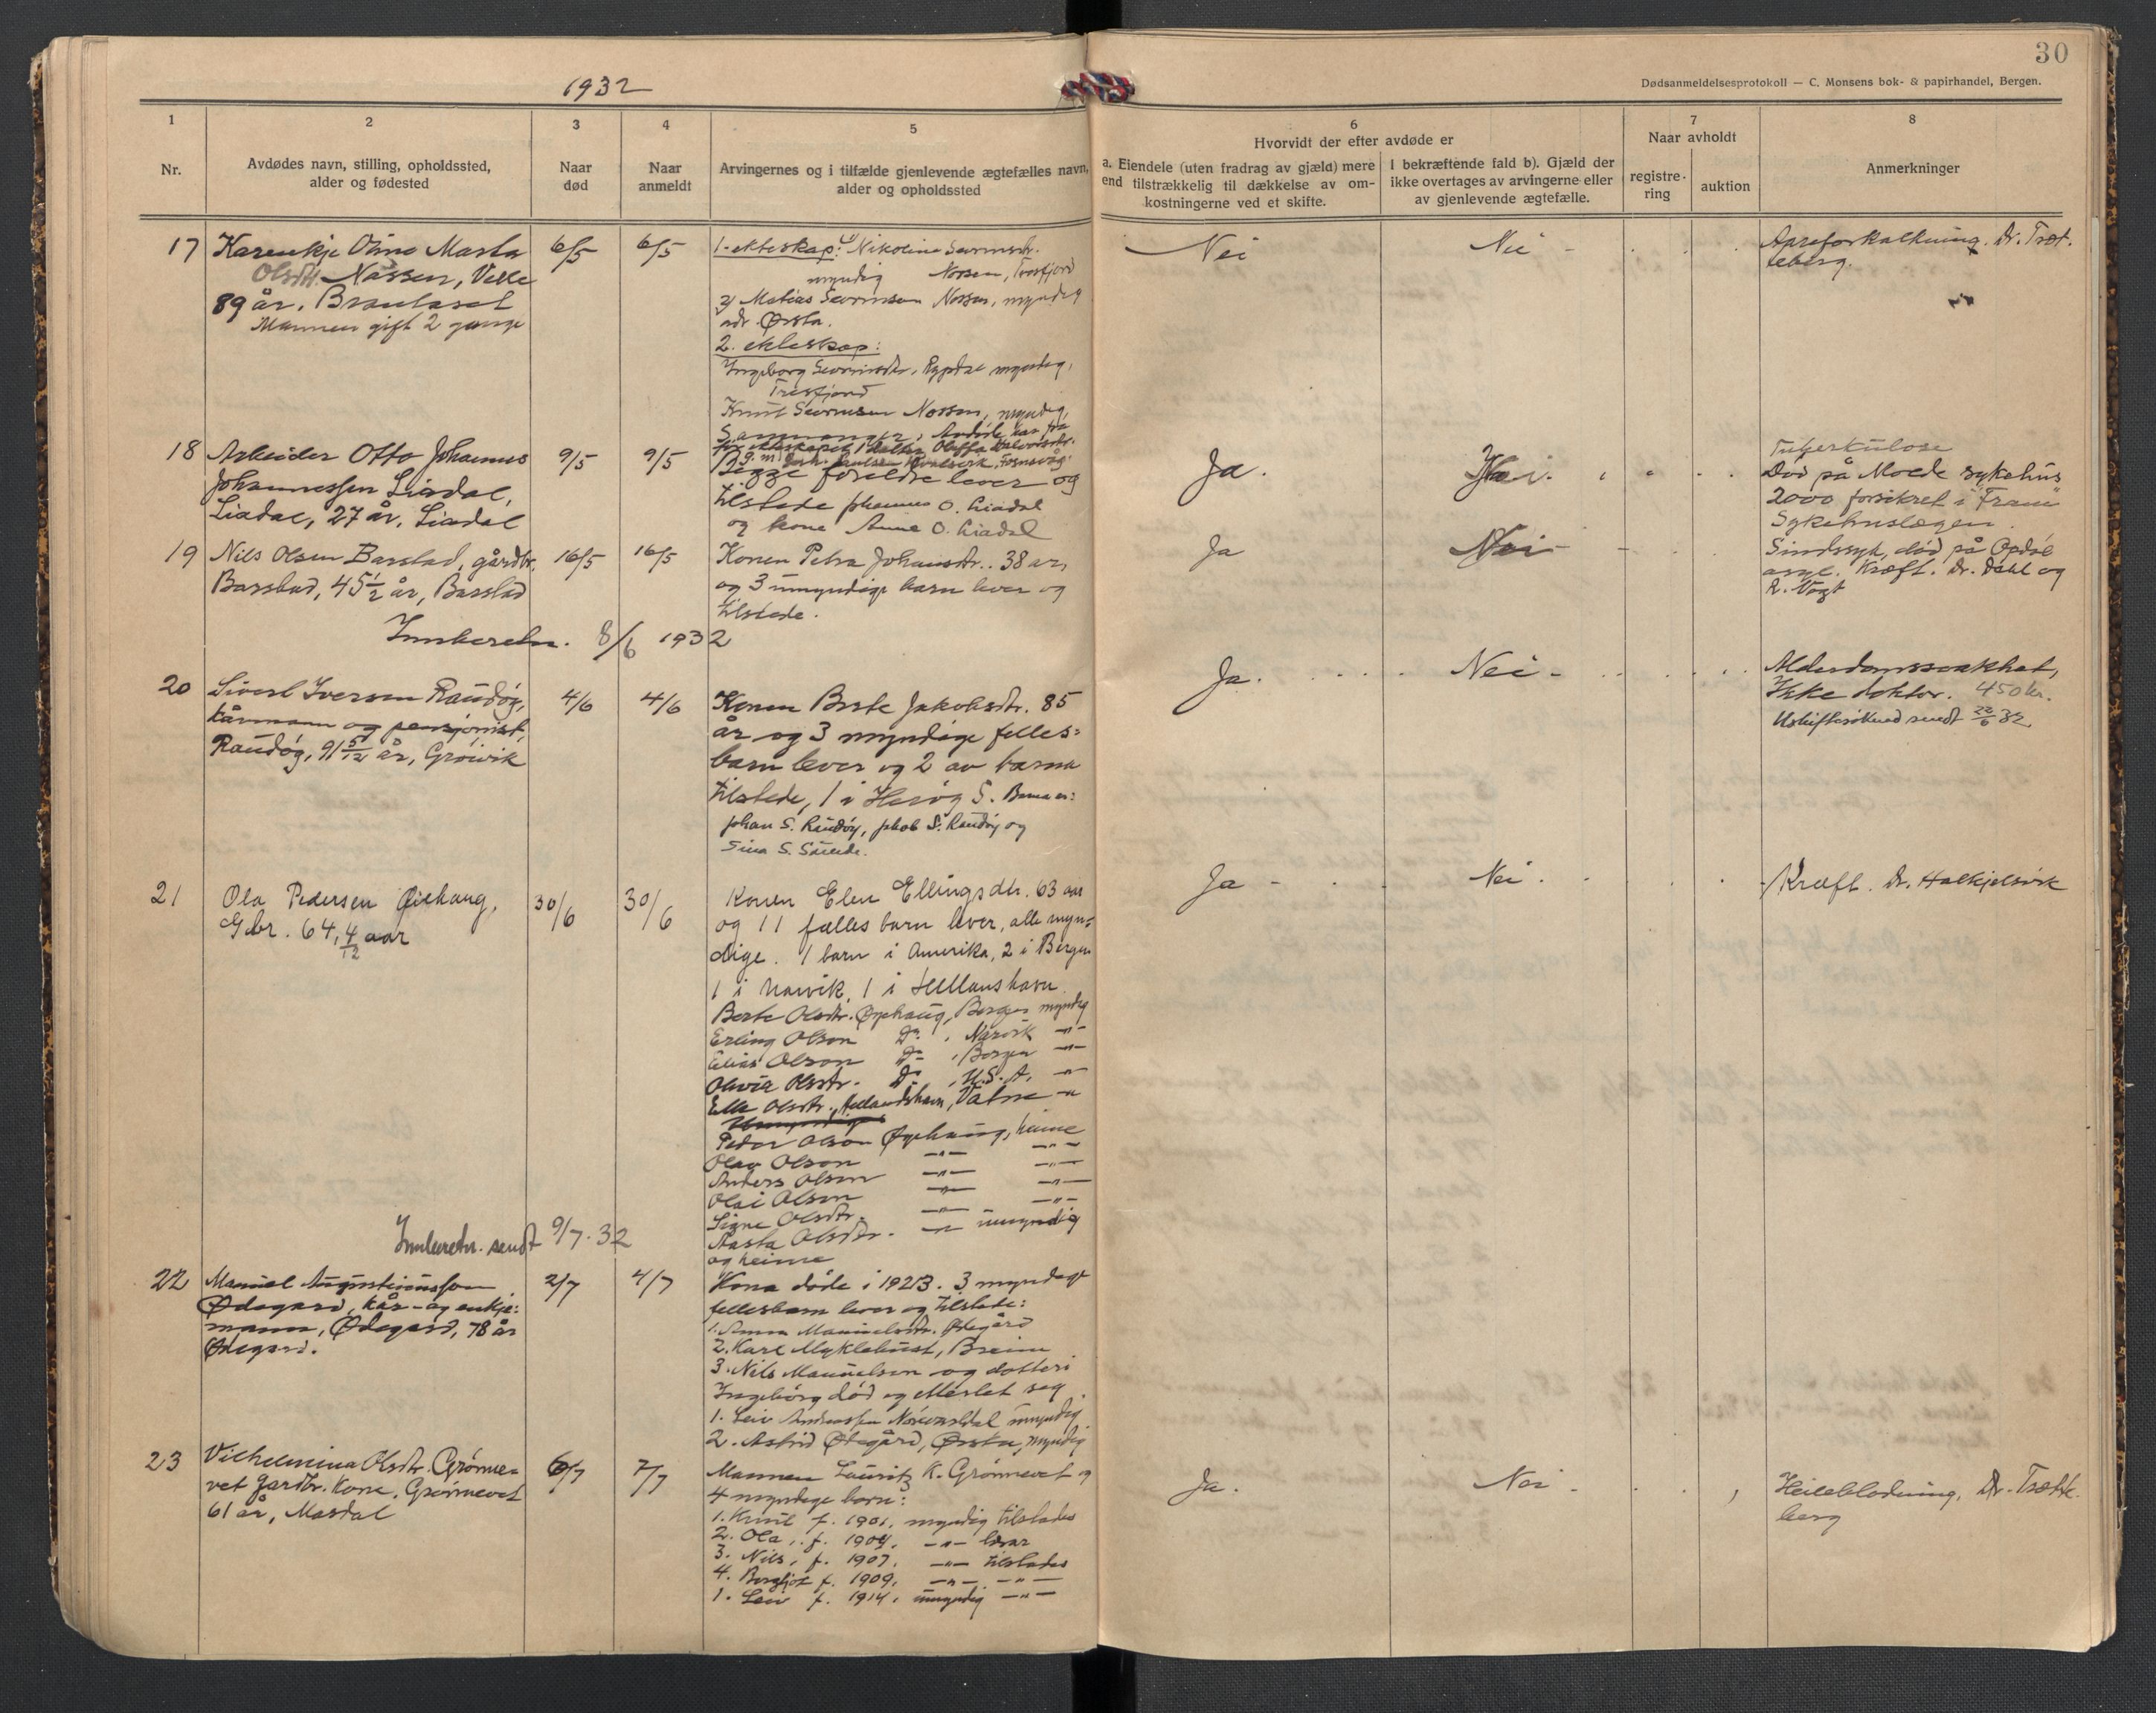 30
Dødsanmeldelsesprotokoll — C. Monsens bok- & papirhandel, Bergen.
1932
1
Nr.
2
Avdødes navn, stilling, opholdssted,
alder og fødested
3
Naar
død
4
Naar
anmeldt
5
Arvingernes og i tilfælde gjenlevende ægtefælles navn,
alder og opholdssted
6
Hvorvidt der efter avdøde er
a. Eiendele (uten fradrag av gjæld) mere
end tilstrækkelig til dækkelse av om-
kostningerne ved et skifte.
I bekræftende fald b). Gjæld der
ikke overtages av arvingerne eller
av gjenlevende ægtefælle.
7
Naar avholdt
registre-
ring
auktion
8
Anmerkninger
17
Olsdtr. Nåssen, Velle
89 år.
Mannen gift 2 gange
6/5
6/5
1. ekteskap: 1) Nikoline
myndig
2) Matias Severinsen Nossen, myndig
adr. Ørsta.
2. ekteskap:
Ingeborg Severinsdtr. Rypdal myndig,
Tresfjord
Knut Severinsen Nossen, myndig,
Nei
Nei -
Areforkalkning. Dr. Tret-
teberg.
18
Arbeider Otto Johannes
Johannessen Liadal,
Liadal, 27 år, Liadal
9/5
9/5
Begge foreldre lever og
tilstede Johannes O. Liadal
og kone Anne O. Liadal
Ja.
Nei.
Tuberkulose
Død på Molde sykehus
2000 forsikret i "Fram"
Sykehuslægen.
19
Nils Olsen Barstad, gårdbr.
Barstad, 45 1/2 år, Barstad
16/5
16/5
Konen Petra Johansdtr.. 38 år,
og 3 umyndige barn lever og
tilstede.
Ja
Nei -
Sindssyk, død på Opdøl
asyl. Kræft. Dr. Dahl og
R. Vogt
Innberetn. 8/6 1932
20
Sivert Iversen Raudøy,
kårmann og pensjonist,
Raudøy, 91 5/12 år, Grøivik
4/6
4/6
Konen Berte Jakobsdtr. 85
år og 3 myndige felles-
barn lever og 2 av barna
tilstede, 1 i Herøy S. Barna er:
Johan S. Raudøy, Jakob S. Raudøy og
Sina S.
Ja.
Nei -
Alderdomssvakhet,
Ikke doktor. 450 kr.
Uskiftesøknad sendt 22/6 32
21
Ola Pedersen Øiehaug,
Gbr. 64, 4/12 aar
30/6
30/6
Konen Elen Ellingsdtr. 63 aar
og 11 fælles barn lever, alle myn-
dige. 1 barn i Amerika, 2 i Bergen
1 i Narvik, 1 i Hellanshavn
Berte Olsdtr. Øyehaug, Bergen myndig
Erling Olson Do , Narvik —"—
Elias Olson Do , Bergen —"—
Olivia Olsdtr. Do , U.S.A. —"—
Ella Olsdtr., Hellandshavn, Vatne —"—
Peder Olson Øyehaug, heime
Olav Olson —"— —"—
Anders Olson —"— —"—
Olai Olson —"— —"—
Signe Olsdtr. —"— —"—
Aasta Olsdtr. —"— umyndig
og heime
Ja -
Nei.
Kræft. Dr. Halkjelsvik
Innberetn. sendt 9/7. 32
22
Manuel Augustinussen
Ødegard, kår- og enkje-
mann, Ødegard, 78 år
Ødegard.
2/7
4/7
Kona døde i 1923. 3 myndige
fellesbarn lever og tilstede:
1. Anna Manuelsdtr. Ødegård
2. Karl Myklebust, Breim
3. Nils Manuelsen og dotteri
Ingebörg död og etterlet seg
1. Leiv Andreassen umyndig
2. Astrid Ødegård, Ørsta, myndig
23
Vilhelmina Olsdtr. Grønne-
vet Gardbr. kone, Grønnevet
61 år, Masdal
6/7
7/7
Mannen Lauritz K. Grønnevet og
4 myndige born:
1. Knut f. 1901. myndig tilstades
2. Ola, f. 1904, —"— lærar
3. Nils, f. 1907. —"— tilstades
4. Bergljot f. 1909. —"— —"—
1. Leiv f. 1914. umyndig —"—
Ja.
Nei -
Heilebløding, Dr. Trætte-
berg